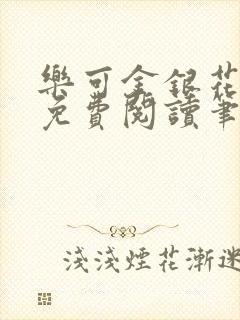 樂可金銀花
免費閱讀筆
淺淺煙花漸迷